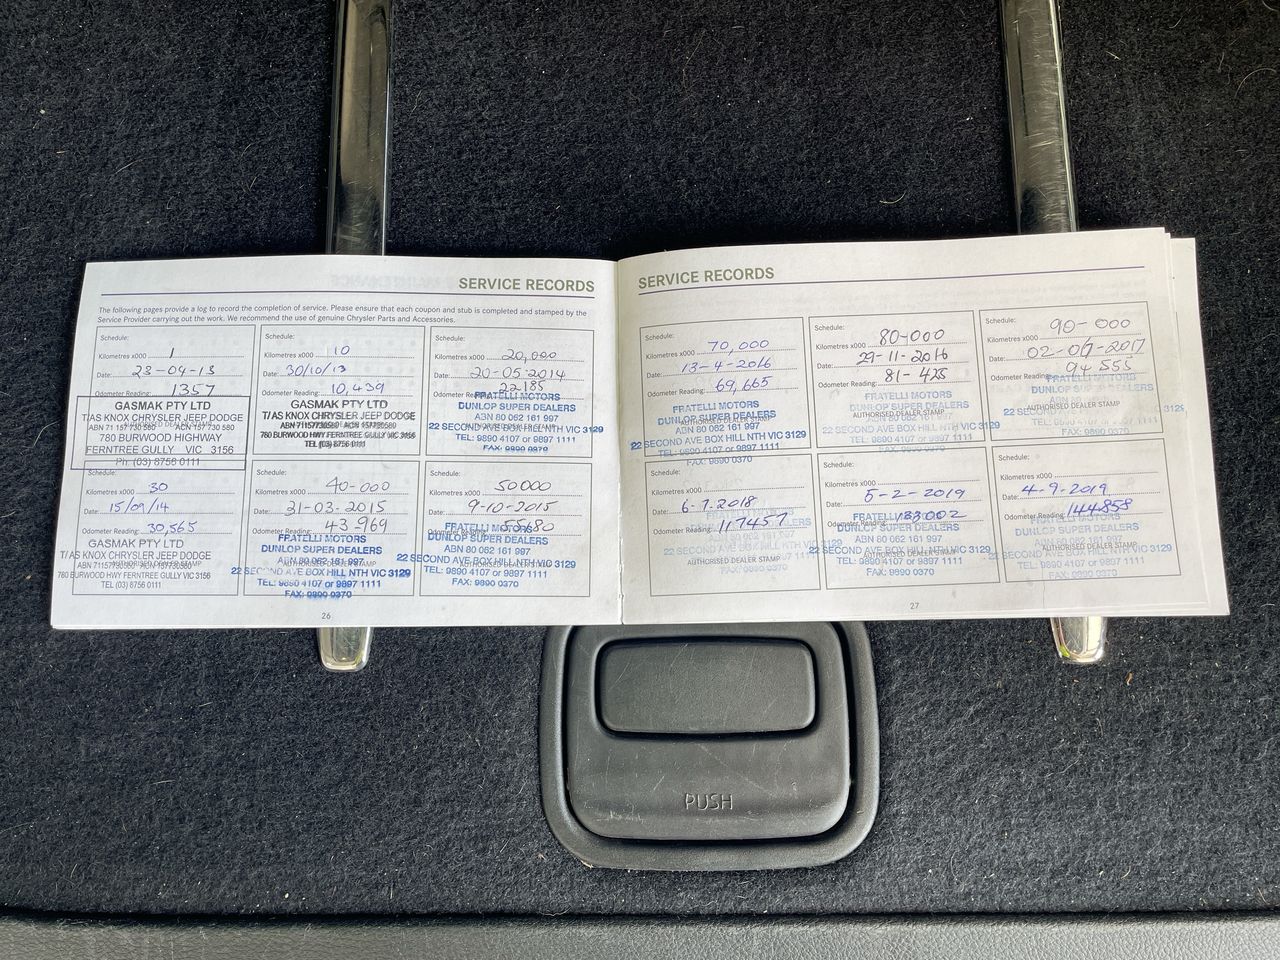 SERVICE RECORDS
The following pages provide a log to record the completion of service. Please ensure that each coupon and stub is completed and stamped by the
Service Provider carrying out the work. We recommend the use of genuine Chrysler Parts and Accessories.
Schedule:
Kilometres x000 1
Date: 23-04-13
Odometer Reading: 1357
GASMAK PTY LTD
T/AS KNOX CHRYSLER JEEP DODGE
ABN 71 157 730 580 ACN 157 730 580
780 BURWOOD HIGHWAY
FERNTREE GULLY VIC 3156
Ph: (03) 8756 0111
Schedule:
Kilometres x000 10
Date: 30/10/13
Odometer Reading: 10,439
GASMAK PTY LTD
T/AS KNOX CHRYSLER JEEP DODGE
780 BURWOOD HWY FERNTREE GULLY VIC 3156
TEL (03) 8756 0111
Schedule:
Kilometres x000 20,000
Date: 20-05-2014
Odometer Reading: 22185
FRATELLI MOTORS
DUNLOP SUPER DEALERS
ABN 80 062 161 997
22 SECOND AVE BOX HILL NTH VIC 3129
TEL: 9890 4107 or 9897 1111
FAX: 9890 0370
Schedule:
Kilometres x000 30
Date: 15/09/14
Odometer Reading: 30,565
GASMAK PTY LTD
T/AS KNOX CHRYSLER JEEP DODGE
780 BURWOOD HWY FERNTREE GULLY VIC 3156
TEL (03) 8756 0111
Schedule:
Kilometres x000 40-000
Date: 21-03-2015
Odometer Reading: 43-969
FRATELLI MOTORS
DUNLOP SUPER DEALERS
ABN 80 062 161 997
22 SECOND AVE BOX HILL NTH VIC 3129
TEL: 9890 4107 or 9897 1111
FAX: 9890 0370
Schedule:
Kilometres x000 50000
Date: 9-10-2015
Odometer Reading: 55680
FRATELLI MOTORS
DUNLOP SUPER DEALERS
ABN 80 062 161 997
22 SECOND AVE BOX HILL NTH VIC 3129
TEL: 9890 4107 or 9897 1111
FAX: 9890 0370
26
SERVICE RECORDS
Schedule:
Kilometres x000 70,000
Date: 13-4-2016
Odometer Reading: 69,665
FRATELLI MOTORS
DUNLOP SUPER DEALERS
AUTHORISED DEALER STAMP
ABN 80 062 161 997
22 SECOND AVE BOX HILL NTH VIC 3129
TEL: 9890 4107 or 9897 1111
FAX: 9890 0370
Schedule:
Kilometres x000 80-000
Date: 29-11-2016
Odometer Reading: 81-425
FRATELLI MOTORS
DUNLOP SUPER DEALERS
AUTHORISED DEALER STAMP
ABN 80 062 161 997
22 SECOND AVE BOX HILL NTH VIC 3129
TEL: 9890 4107 or 9897 1111
FAX: 9890 0370
Schedule:
Kilometres x000 90-000
Date: 02-07-2017
Odometer Reading: 94 555
FRATELLI MOTORS
DUNLOP SUPER DEALERS
ABN 80 062 161 997
AUTHORISED DEALER STAMP
22 SECOND AVE BOX HILL NTH VIC 3129
TEL: 9890 4107 or 9897 1111
Schedule:
Kilometres x000
Date: 6-7-2018
Odometer Reading: 117457
DUNLOP SUPER DEALERS
ABN 80 062 161 997
22 SECOND AVE BOX HILL NTH VIC 3129
AUTHORISED DEALER STAMP
TEL: 9890 4107 or 9897 1111
FAX: 9890 0370
Schedule:
Kilometres x000
Date: 5-2-2019
Odometer Reading: 133002
FRATELLI MOTORS
DUNLOP SUPER DEALERS
ABN 80 062 161 997
22 SECOND AVE BOX HILL NTH VIC 3129
AUTHORISED DEALER STAMP
TEL: 9890 4107 or 9897 1111
FAX: 9890 0370
Schedule:
Kilometres x000
Date: 4-9-2019
Odometer Reading: 144858
FRATELLI MOTORS
DUNLOP SUPER DEALERS
ABN 80 062 161 997
22 SECOND AVE BOX HILL NTH VIC 3129
AUTHORISED DEALER STAMP
TEL: 9890 4107 or 9897 1111
FAX: 9890 0370
27
PUSH